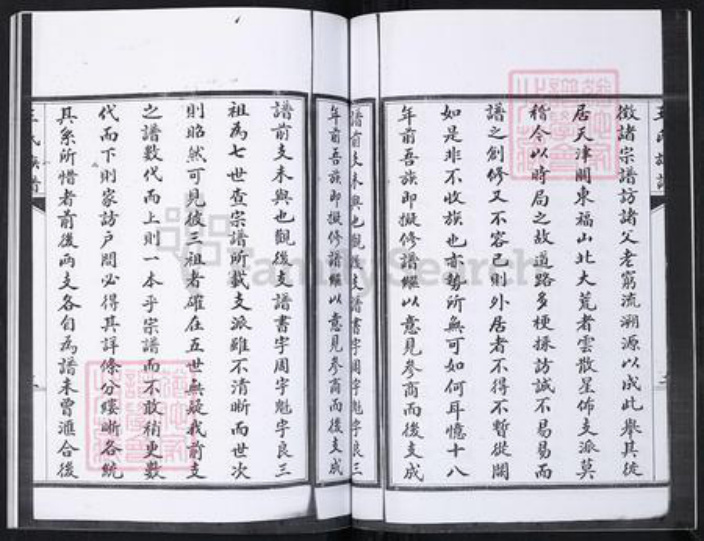 王氏族譜
徵諸宗譜訪諸父老窮流溯源以成此舉其徙
居天津關東福山北大荒者雲散星佈支派莫
稽今以時局之故道路多梗採訪誠不易易而
譜之創修又不容已則外居者不得不暫從闕
如是非不收族也亦勢所無可如何耳憶十八
年前吾族即擬修譜繼以意見參商而後支成
譜前支未與也觀後支譜書字周字魁字良三
年前吾族即擬修譜繼以意見參商而後支成
譜前支未與也觀後支譜書字周字魁字良三
祖為七世查宗譜所載支派雖不清晰而世次
則昭然可見彼三祖者確在五世無疑我前支
之譜數代而上則一本乎宗譜而不敢稍更數
代而下則家訪戶問必得其詳條分縷晰各統
其系所惜者前後兩支各自為譜未曾滙合後
王氏族譜
FamilySearch